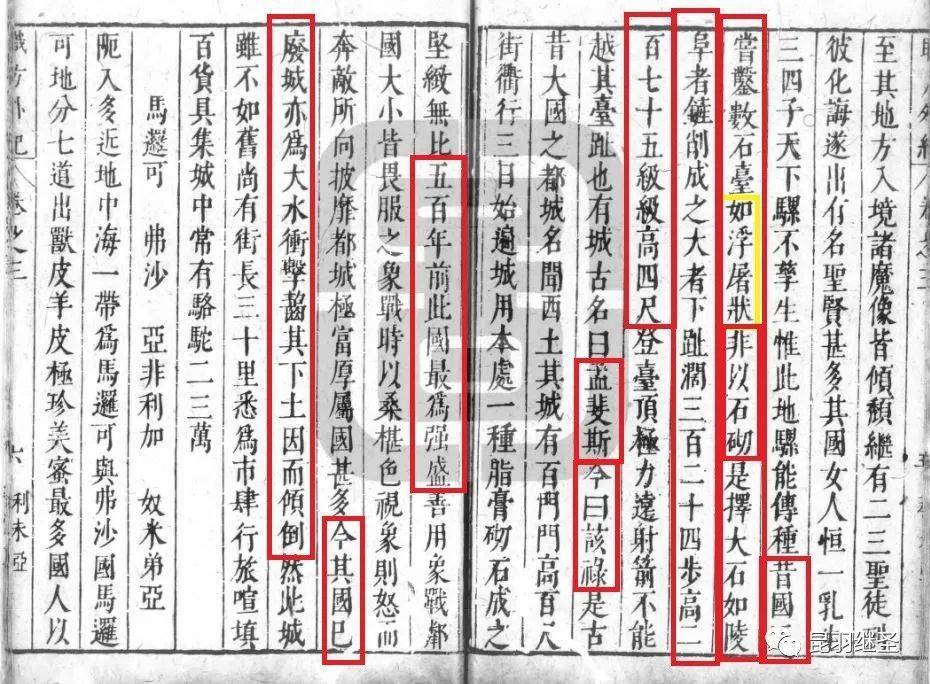 至其地方入境諸魔像皆傾頹繼有二三聖徒到
彼化誨遂出有名聖賢甚多其國女人恒一乳生
三四子天下騾不孳生惟此地騾能傳種昔國
嘗鑿數石臺如浮屠狀非以石砌是擇大石如陵
阜者鏟削成之大者下趾濶三百二十四步高二
百七十五級級高四尺登臺頂極力遠射箭不能
越其臺趾也有城古名曰孟斐斯今曰該祿是古
昔大國之都城名聞西土其城有百門門高百尺
街衢行三日始遍城用本處一種脂膏砌石成之
堅緻無比五百年前此國最爲强盛善用象戰鄰
國大小皆畏服之象戰時以桑椹色視象則怒而
奔敵所向披靡都城極富厚屬國甚多今其國已
廢城亦爲大水衝擊齧其下土因而傾倒然此城
雖不如舊尚有街長三十里悉爲市肆行旅喧填
百貨具集城中常有駱駝二三萬
馬邏可 弗沙 亞非利加 奴米弟亞
阨入多近地中海一帶爲馬邏可與弗沙國馬邏
可地分七道出獸皮羊皮極珍美蜜最多國人以
職方外紀 卷之三 六 利未亞
昆羽继圣